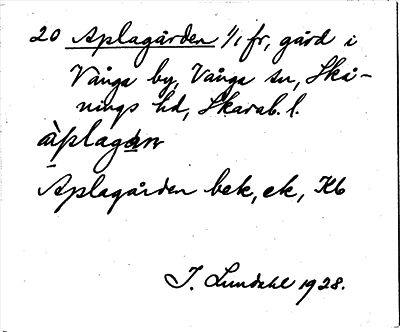 20 Aplagården 1/1 fr, gård i
Vånga by, Vånga sn, Skå-
nings hd, Skarab. l.
àplagan
Aplagården bek, ek, Kb
I. Lundahl 1928.